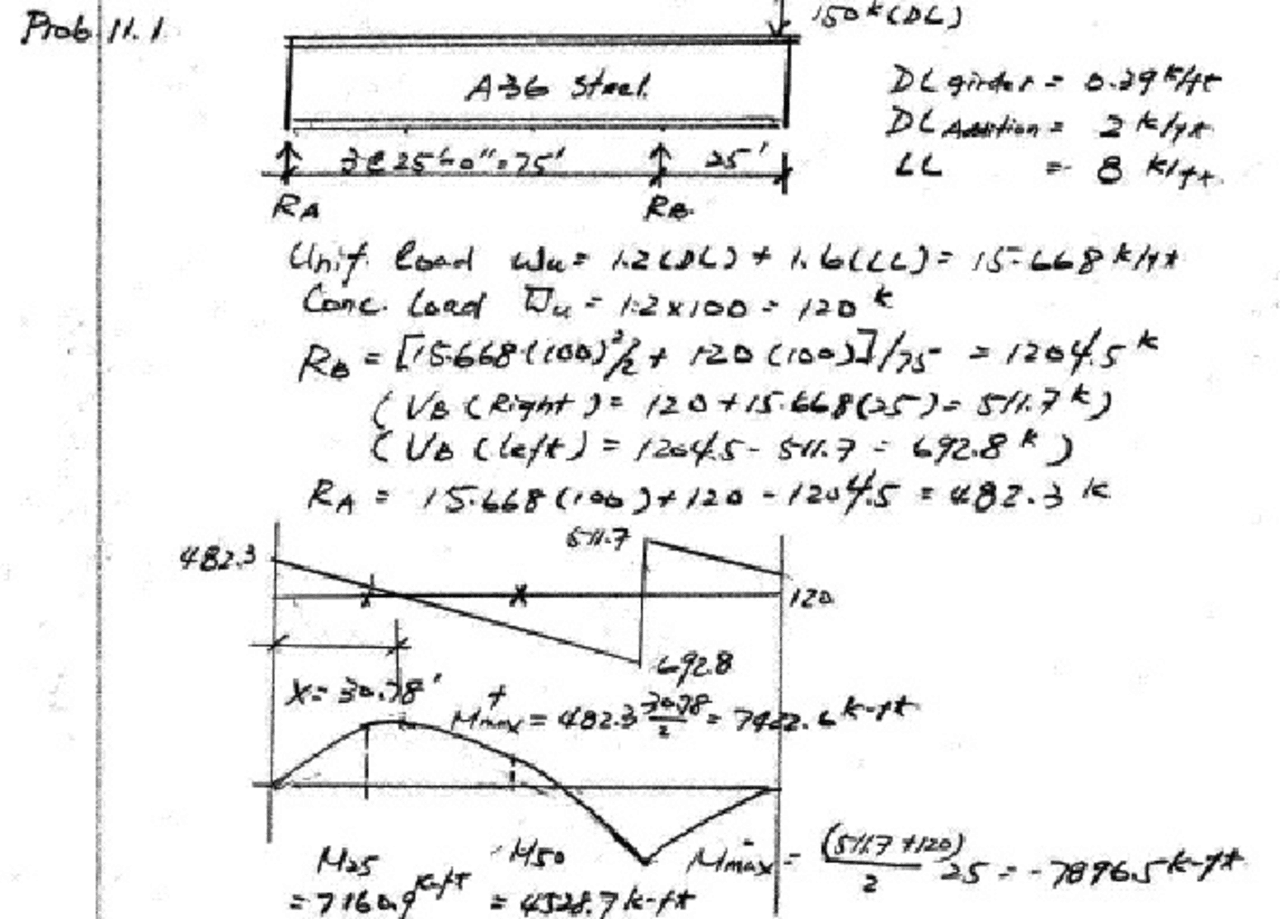 Prob 11.1
150 k (DL)
A36 Steel
DL girder = 0.39 k/ft
DL Addition = 2 k/ft
LL = 8 k/ft
3@25'-0" = 75' 25'
RA RB
Unif. load Wu = 1.2(DL) + 1.6(LL) = 15.668 k/ft
Conc. load Wu = 1.2x100 = 120 k
RB = [15.668(100)²/2 + 120(100)]/75 = 1204.5 k
(VB (Right) = 120 + 15.668(25) = 511.7 k)
(VB (left) = 1204.5 - 511.7 = 692.8 k)
RA = 15.668(100) + 120 - 1204.5 = 482.3 k
482.3 511.7
120
692.8
X = 30.78'
M+max = 482.3 30.78/2 = 7422.6 k-ft
M25 M50 M-max = (511.7+120)/2 25 = -7896.5 k-ft
= 7160.9 k-ft = 4528.7 k-ft